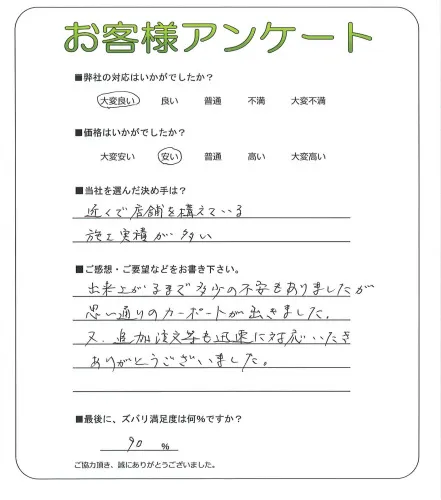 お客様アンケート
■弊社の対応はいかがでしたか？
大変良い 良い 普通 不満 大変不満
■価格はいかがでしたか？
大変安い 安い 普通 高い 大変高い
■当社を選んだ決め手は？
近くで店舗を構えている
施工実積が多い
■ご感想・ご要望などをお書き下さい。
出来上がるまで多少の不安もありましたが
思い通りのカーポートが出きました。
又、追加注文等も迅速に対応いただき
ありがとうございました。
■最後に、ズバリ満足度は何％ですか？
90 %
ご協力頂き、誠にありがとうございました。